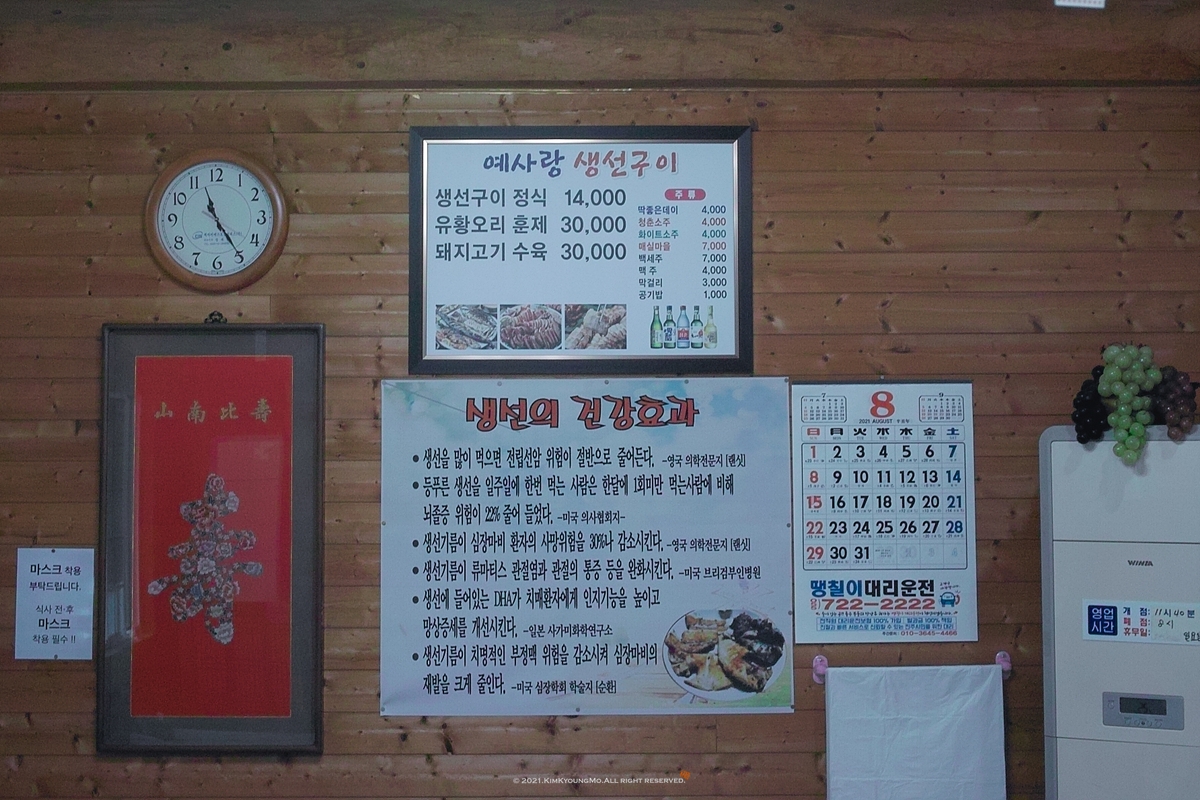 예사랑 생선구이
생선구이 정식 14,000
유황오리 훈제 30,000
돼지고기 수육 30,000
주 류
딱좋은데이 4,000
청춘소주 4,000
화이트소주 4,000
매실마을 7,000
백세주 7,000
맥 주 4,000
막걸리 3,000
공기밥 1,000
12
1
2
3
4
5
6
7
8
9
10
11
山南比壽
壽
마스크 착용
부탁드립니다.
식사 전·후
마스크
착용 필수 !!
생선의 건강효과
● 생선을 많이 먹으면 전립선암 위험이 절반으로 줄어든다. -영국 의학전문지 [랜싯]
● 등푸른 생선을 일주일에 한번 먹는 사람은 한달에 1회미만 먹는사람에 비해
뇌졸증 위험이 22% 줄어 들었다. -미국 의사협회지-
● 생선기름이 심장마비 환자의 사망위험을 30%나 감소시킨다. -영국 의학전문지 [랜싯]
● 생선기름이 류마티스 관절염과 관절의 통증 등을 완화시킨다. -미국 브리검부인병원
● 생선에 들어있는 DHA가 치매환자에게 인지기능을 높이고
망상증세를 개선시킨다. -일본 사가미화학연구소
● 생선기름이 치명적인 부정맥 위험을 감소시켜 심장마비의
재발을 크게 줄인다. -미국 심장학회 학술지 [순환]
7 8 9
2021 AUGUST
日 月 火 水 木 金 土
1 2 3 4 5 6 7
8 9 10 11 12 13 14
15 16 17 18 19 20 21
22 23 24 25 26 27 28
29 30 31
땡칠이대리운전
722-2222
010-3645-4466
WINIA
영업
시간
개 점: 11시 40분
폐 점: 8시
휴무일:
© 2021.KimKyoungMo.All right reserved.